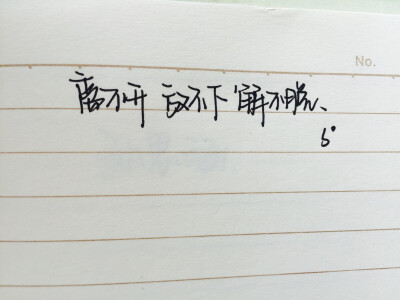 No.
离不开 放不下 解不脱、
6°